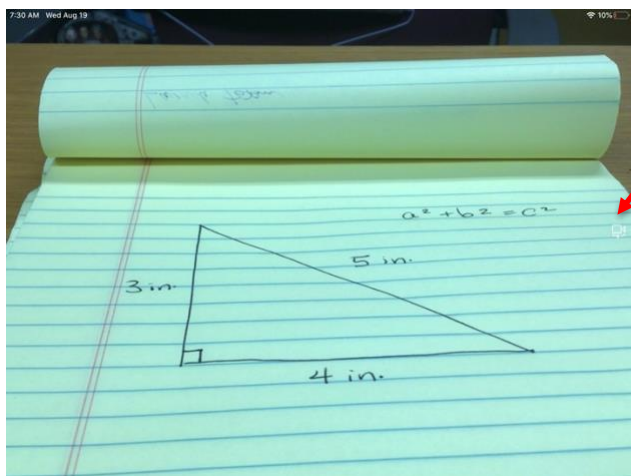 7:30 AM Wed Aug 19
10%
a² + b² = c²
5 in.
3 in.
4 in.